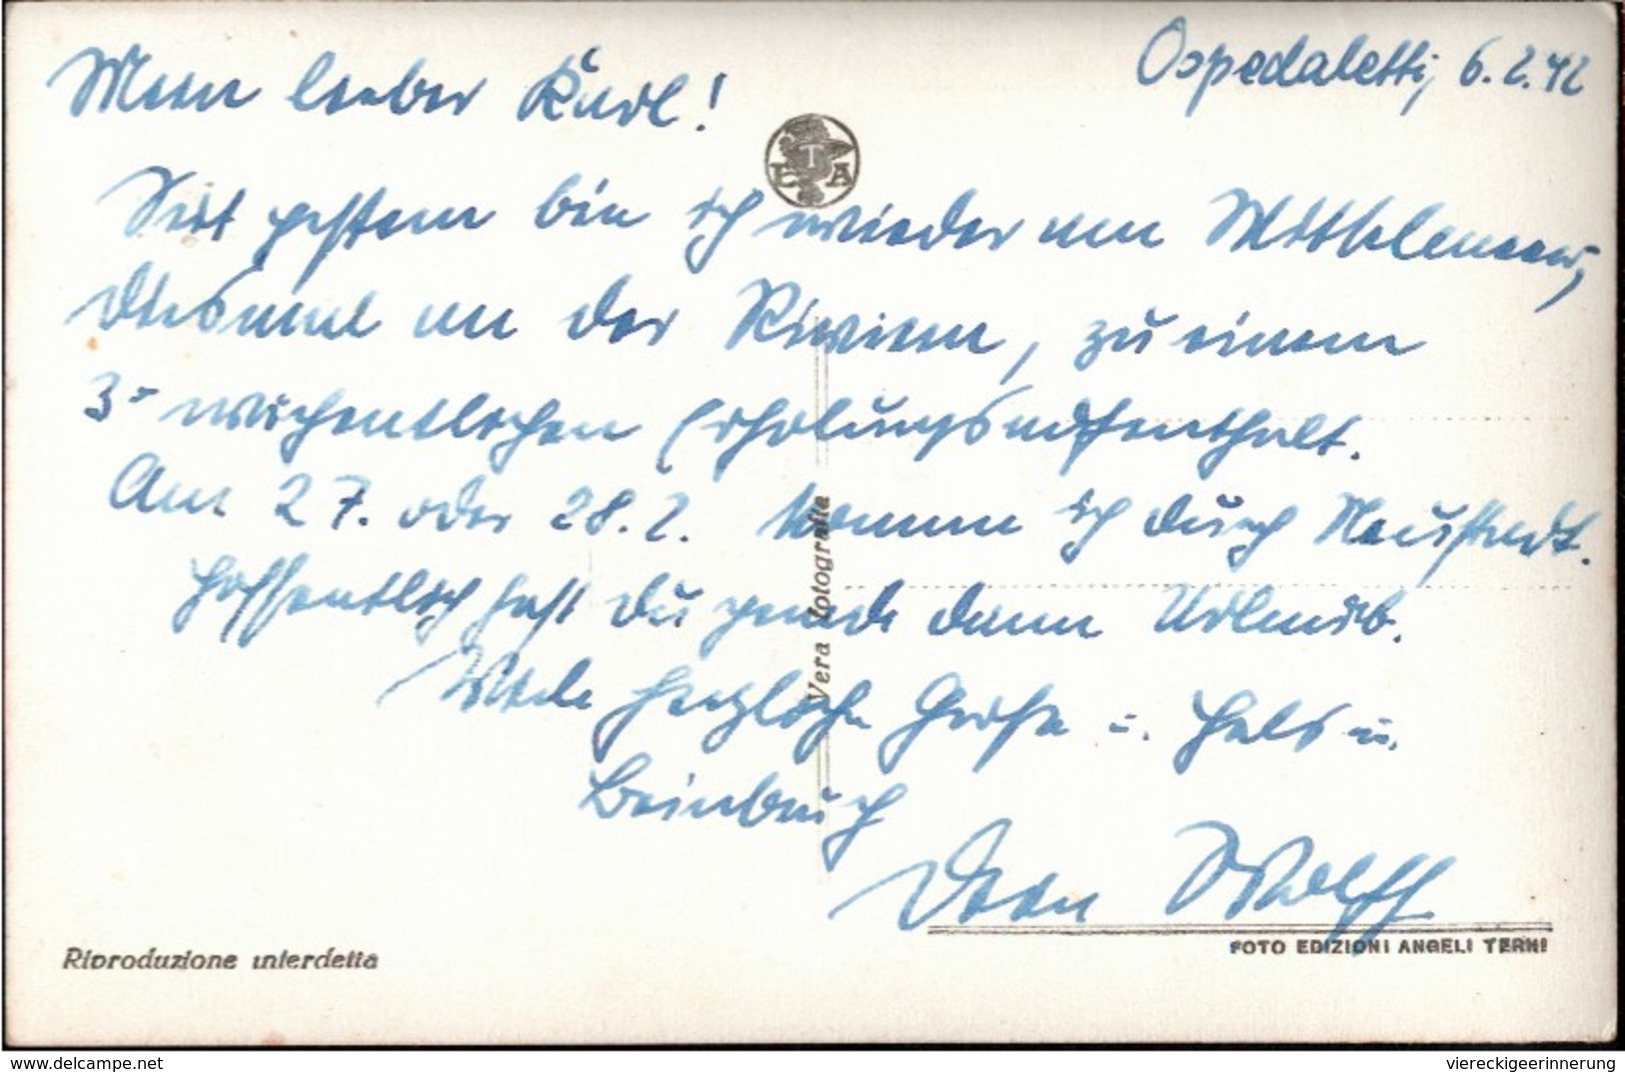 Ospedaletti, 6.2.42
Mein lieber Karl!
Seit gestern bin ich wieder am Mittelmeer,
diesmal an der Riviera, zu einem
3-wöchentlichen Erholungsaufenthalt.
Am 27. oder 28.2. komme ich durch Neustadt.
Hoffentlich hast Du gerade dann Urlaub.
Viele herzliche Grüße u. Hals u.
Beinbruch
Dein Wolff
ETA
Vera fotografia
Riproduzione interdetta
FOTO EDIZIONI ANGELI TERNI
www.delcampe.net
viereckigeerinnerung